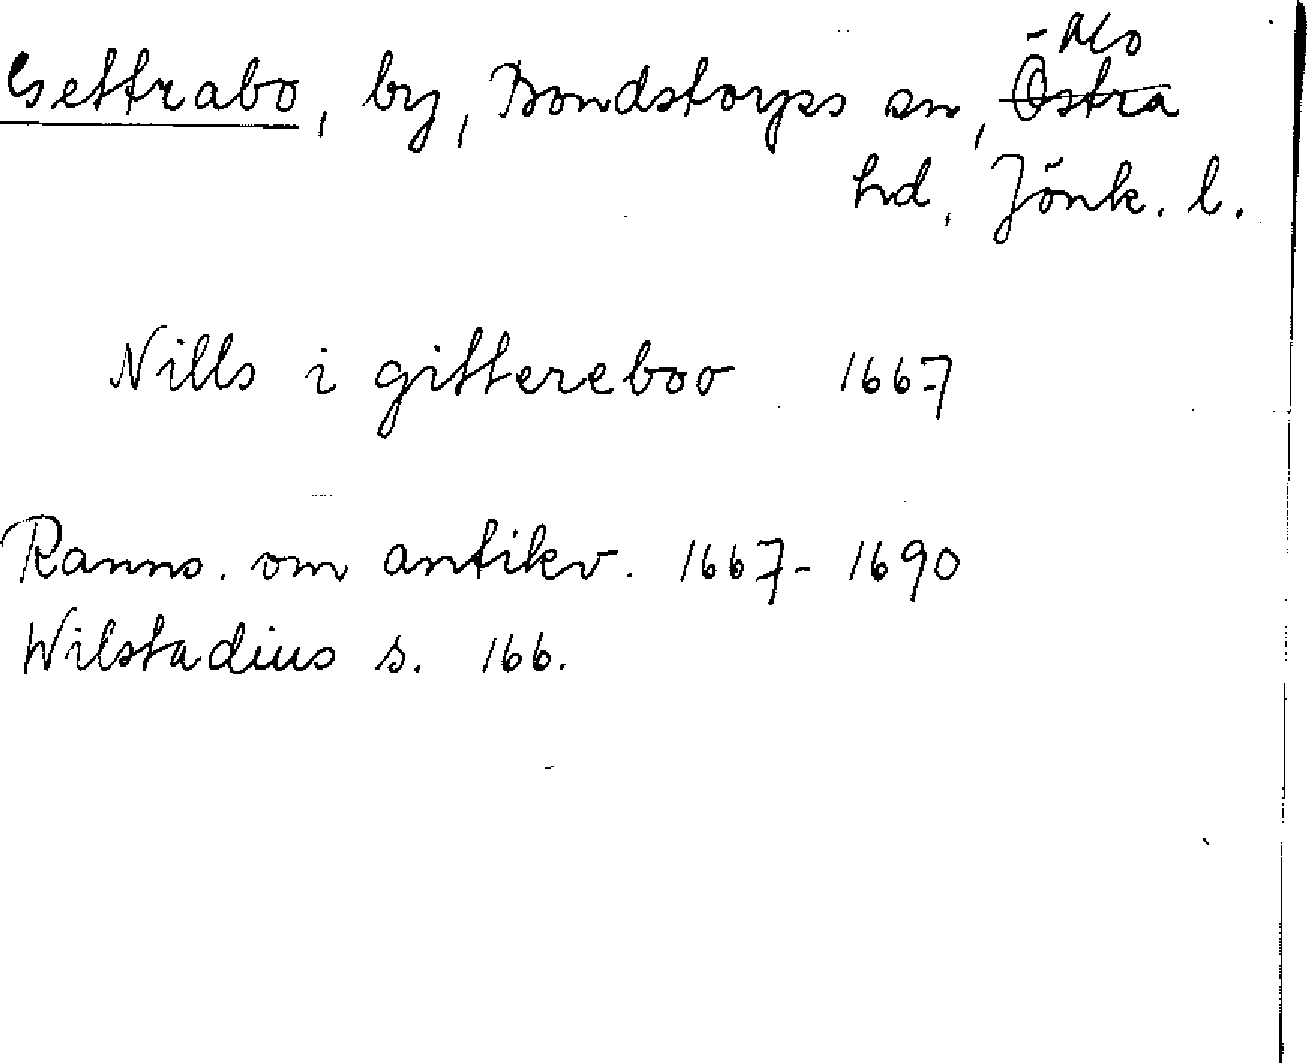 Gettrabo, by, Bondstorps sn, Östra
hd, Jönk. l.
Nills i gittereboo 1667
Ranns. om antikv. 1667-1690
Wilstadius s. 166.